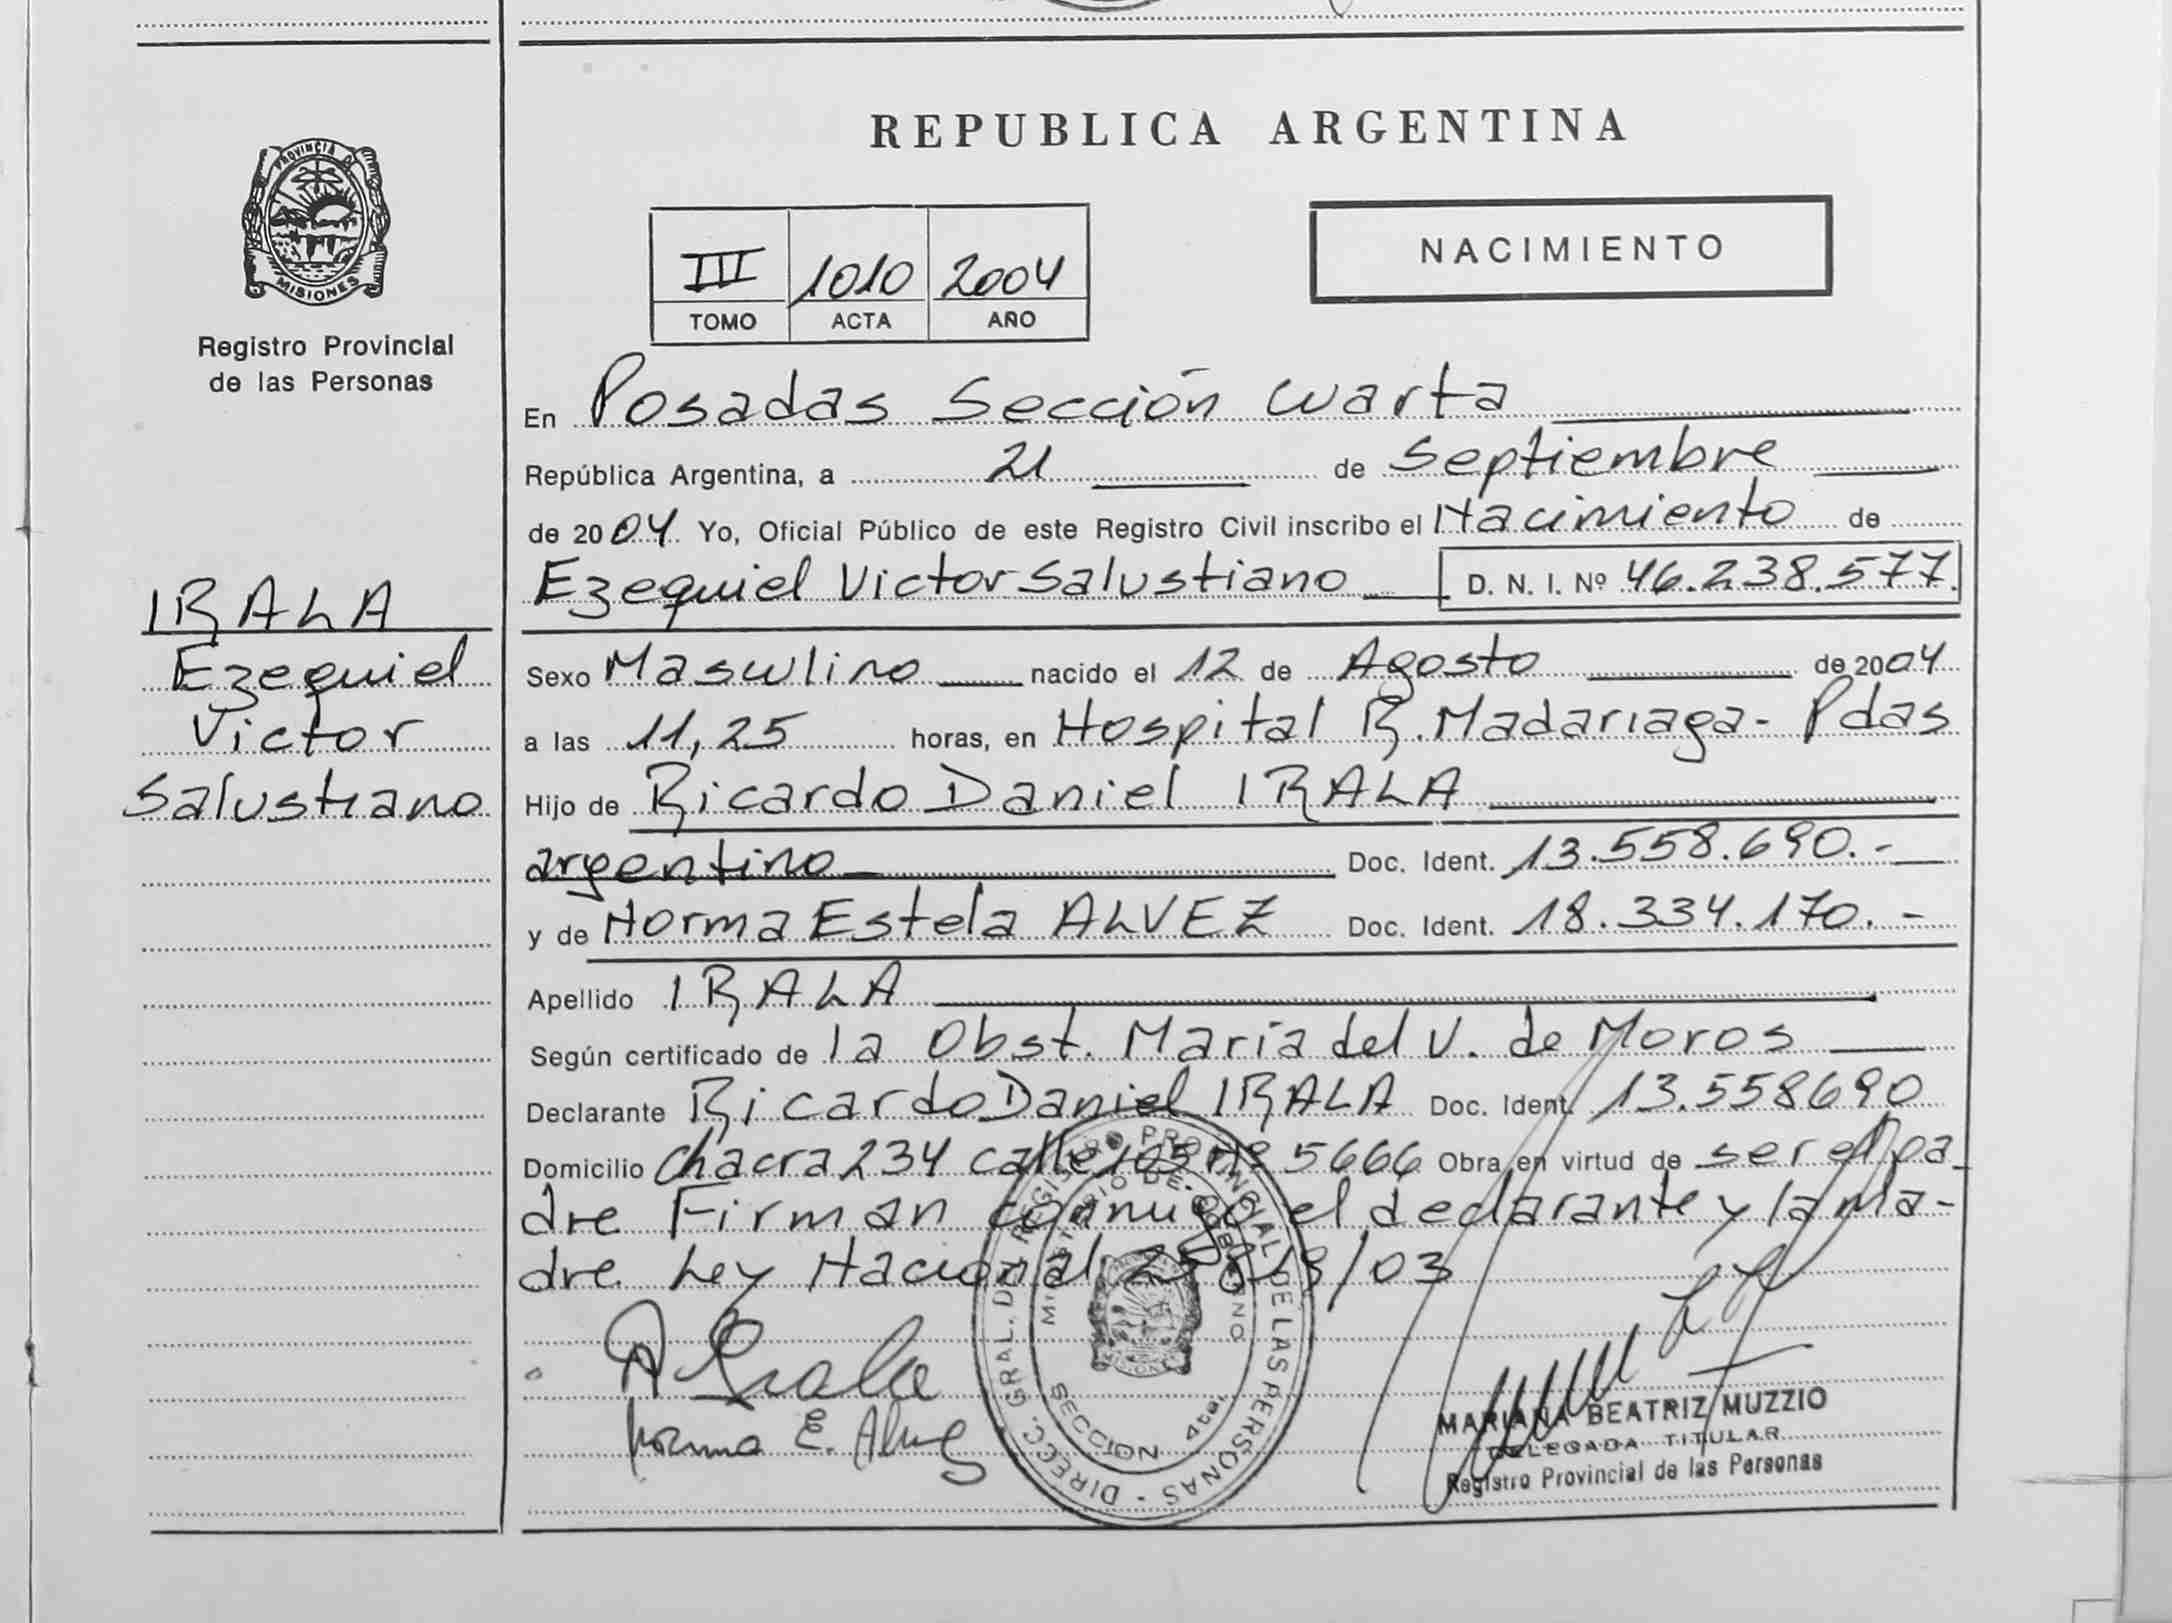 PROVINCIA DE
MISIONES
Registro Provincial
de las Personas
IRALA
Ezequiel
Victor
Salustiano
REPUBLICA ARGENTINA
III 1010 2004
TOMO ACTA AÑO
NACIMIENTO
En Posadas Sección Cuarta
República Argentina, a 21 de Septiembre
de 2004 Yo, Oficial Público de este Registro Civil inscribo el Nacimiento de
Ezequiel Victor Salustiano D. N. I. Nº 46.238.577.
Sexo Masculino nacido el 12 de Agosto de 2004
a las 11,25 horas, en Hospital R. Madariaga - Pdas
Hijo de Ricardo Daniel IRALA
argentino Doc. Ident. 13.558.690.-
y de Norma Estela ALVEZ Doc. Ident. 18.334.170.-
Apellido IRALA
Según certificado de la Obst. María del V. de Moros
Declarante Ricardo Daniel IRALA Doc. Ident. 13.558690
Domicilio Chacra 234 calle 105 Nº 5666 Obra en virtud de ser el pa
dre Firman conmigo el declarante y la ma-
dre. Ley Nacional /03
R Irala
Norma E. Alvez
DIRECC. GRAL. DEL REGISTRO PROVINCIAL DE LAS PERSONAS -
MINISTERIO DE GOBIERNO
SECCION 4ta.
MARIANA BEATRIZ MUZZIO
DELEGADA TITULAR
Registro Provincial de las Personas